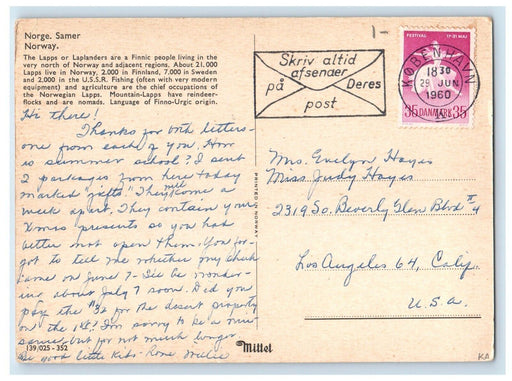 Norge. Samer
Norway.
The Lapps or Laplanders are a Finnic people living in the
very north of Norway and adjacent regions. About 21,000
Lapps live in Norway, 2,000 in Finnland, 7,000 in Sweden
and 2,000 in the U.S.S.R. Fishing (often with very modern
equipment) and agriculture are the chief occupations of
the Norwegian Lapps. Mountain-Lapps have reindeer-
flocks and are nomads. Language of Finno-Urgic origin.
Hi there!
Thanks for both letters-
one from each of you. How
is summer school? I sent
2 packages from here today
marked "gifts". They'll come a
week apart. They contain your
Xmas presents so you had
better not open them. You for-
got to tell me whether my check
came on June 7- I'll be wonder-
ing about July 7 soon. Did you
pay the for the desert property
on the 1st? I'm sorry to be a nui-
sance but for not much longer.
Be good little kids- Love Millie
139/025 - 352
PRINTED IN NORWAY
Mittet
1-
Skriv altid
afsender
på Deres
post
FESTIVAL 17-31 MAJ
KØBENHAVN
18 30
29 JUN
1960
35 DANMARK 35
Mrs. Evelyn Hayes
Miss Judy Hayes
2319 So. Beverly Glen Blvd #4
Los Angeles 64, Calif.
U.S.A.
KA